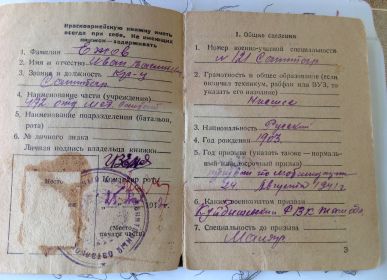 Красноармейскую книжку иметь
всегда при себе. Не имеющих
книжек—задерживать
1. Фамилия Ежов
2. Имя и отчество Иван
3. Звание и должность Кр-ц
Санитар
4. Наименование части (учреждения)
492 отд. мед.
5. Наименование подразделения (батальон,
рота)
6. № личного знака
Личная подпись владельца книжки—
Место
Командир роты
(Место
печати части)
1. Общие сведения
1. Номер военно-учетной специальности
№ 121 Санитар
2. Грамотность и общее образование (если
окончил техникум, рабфак или ВУЗ, то
указать его название)
Низшее
3. Национальность Русский
4. Год рождения 1903
5. Год призыва (указать также — нормальный
или досрочный призыв)
призван по мобилизации
24 Августа 1941 г
6. Каким военкоматом призван
Куйбышевским РВК
7. Специальность до призыва
Маляр
3